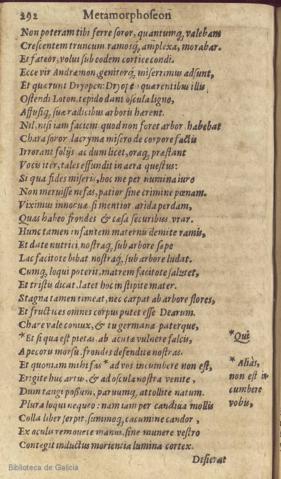 292 Metamorphoseon
Non poteram tibi ferre soror, quantumq, valebam
Crescentem truncum ramosq, amplexa, morabar.
Et fateor, volui sub eodem cortice condi.
Ecce vir Andræmon, genitorq, miserrimus adsunt,
Et quærunt Dryopen: Dryopen quærentibus illis
Ostendi Loton. tepido dant oscula ligno,
Affusiq, suæ radicibus arboris hærent.
Nil, nisi iam faciem quod non foret arbor habebat
Chara soror: lacryma misero de corpore factis
Irrorant folijs: ac dum licet, oraq, præstant
Vocis iter, tales effundit in aera questus:
Si qua fides miseris, hoc me per numina iuro
Non meruisse nefas, patior sine crimine pœnam.
Viximus innocuæ. si mentior. arida perdam,
Quas habeo frondes & cæsa securibus vrar.
Hunc tamen infantem maternu demite ramis,
Et date nutrici, nostraq, sub arbore sæpe
Lac facitote bibat nostraq, sub arbore ludat.
Cumq, loqui poterit. matrem facitote salutet,
Et tristis dicat. latet hoc in stipite mater.
Stagna tamen timeat, nec carpat ab arbore flores,
Et frutices omnes corpus putet esse Dearum.
Chare vale coniux, & tu germana paterque,
*Et si qua est pietas. ab acutæ vulnere falcis, *Qui
Apecoru morsu, frondes defendite nostras.
Et quoniam mihi fas * ad vos incumbere non est, * Aliàs,
Erigite huc artus, & ad oscula nostra venite, non est in-
Dum tangi possum, paruumq, attollite natum. cumbere
Plura loqui nequeo: nam iam per candida mollis vobis,
Colla liber serpit. summoq, cacumine condor,
Ex oculis remouete manus. sine munere vestro
Contegit inductus morientia lumina cortex.
Desierat
Biblioteca de Galicia